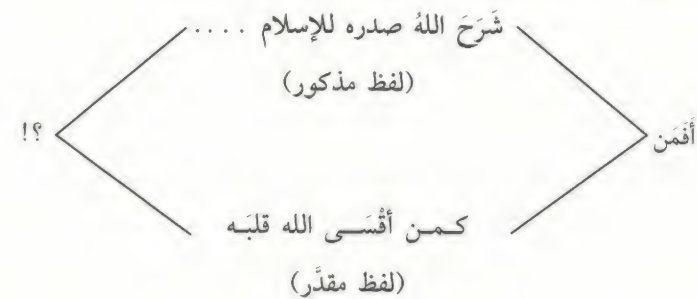 شَرَحَ اللهُ صدره للإسلام ....
(لفظ مذكور)
أَفَمَن
؟!
كـمـن أقْسَــى الله قلبَـه
(لفظ مقدَّر)